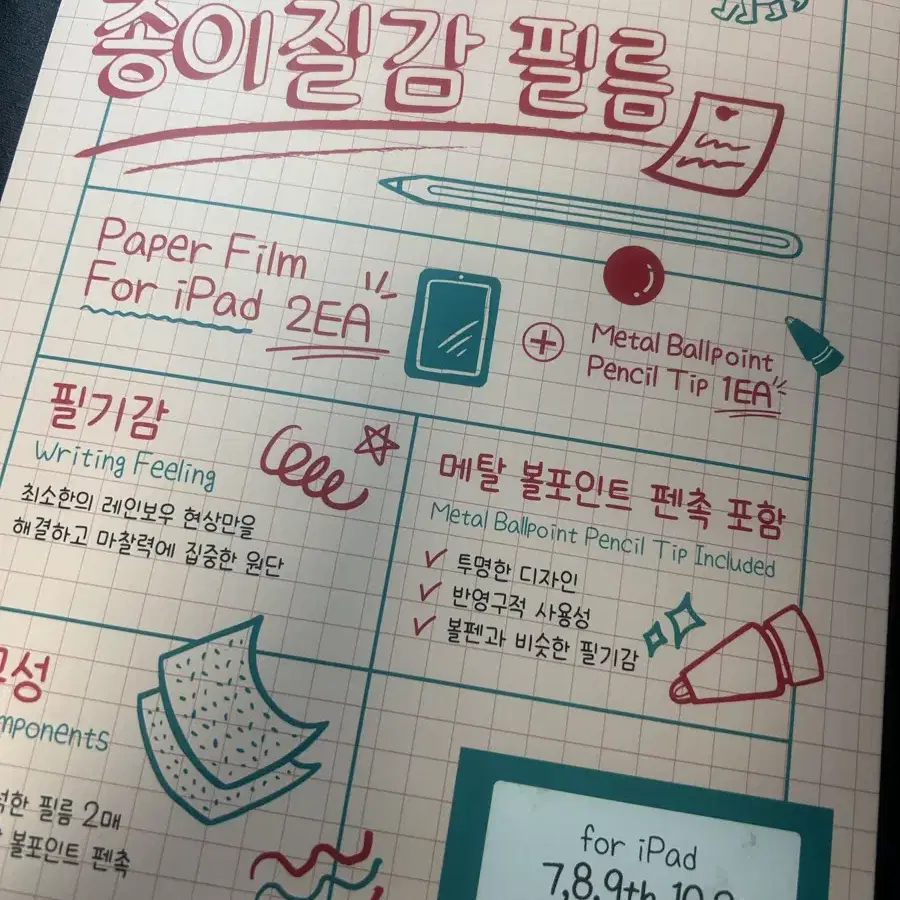 종이질감 필름
Paper Film
For iPad 2EA
Metal Ballpoint
Pencil Tip 1EA
필기감
Writing Feeling
최소한의 레인보우 현상만을
해결하고 마찰력에 집중한 원단
메탈 볼포인트 펜촉 포함
Metal Ballpoint Pencil Tip Included
투명한 디자인
반영구적 사용성
볼펜과 비슷한 필기감
필름 2매
볼포인트 펜촉
for iPad
7,8,9th